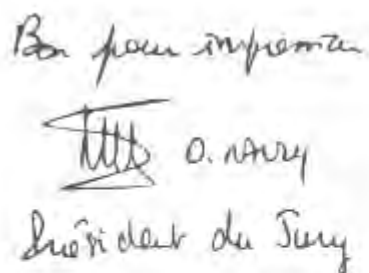 Bon pour impression
O. NAURY
Président du Jury